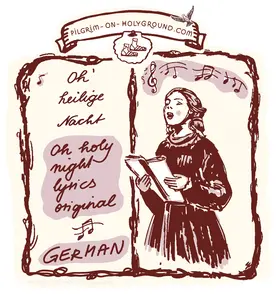 PILGRIM-ON-HOLYGROUND.COM
Oh'
heilige
Nacht
Oh holy
night
lyrics
original
GERMAN